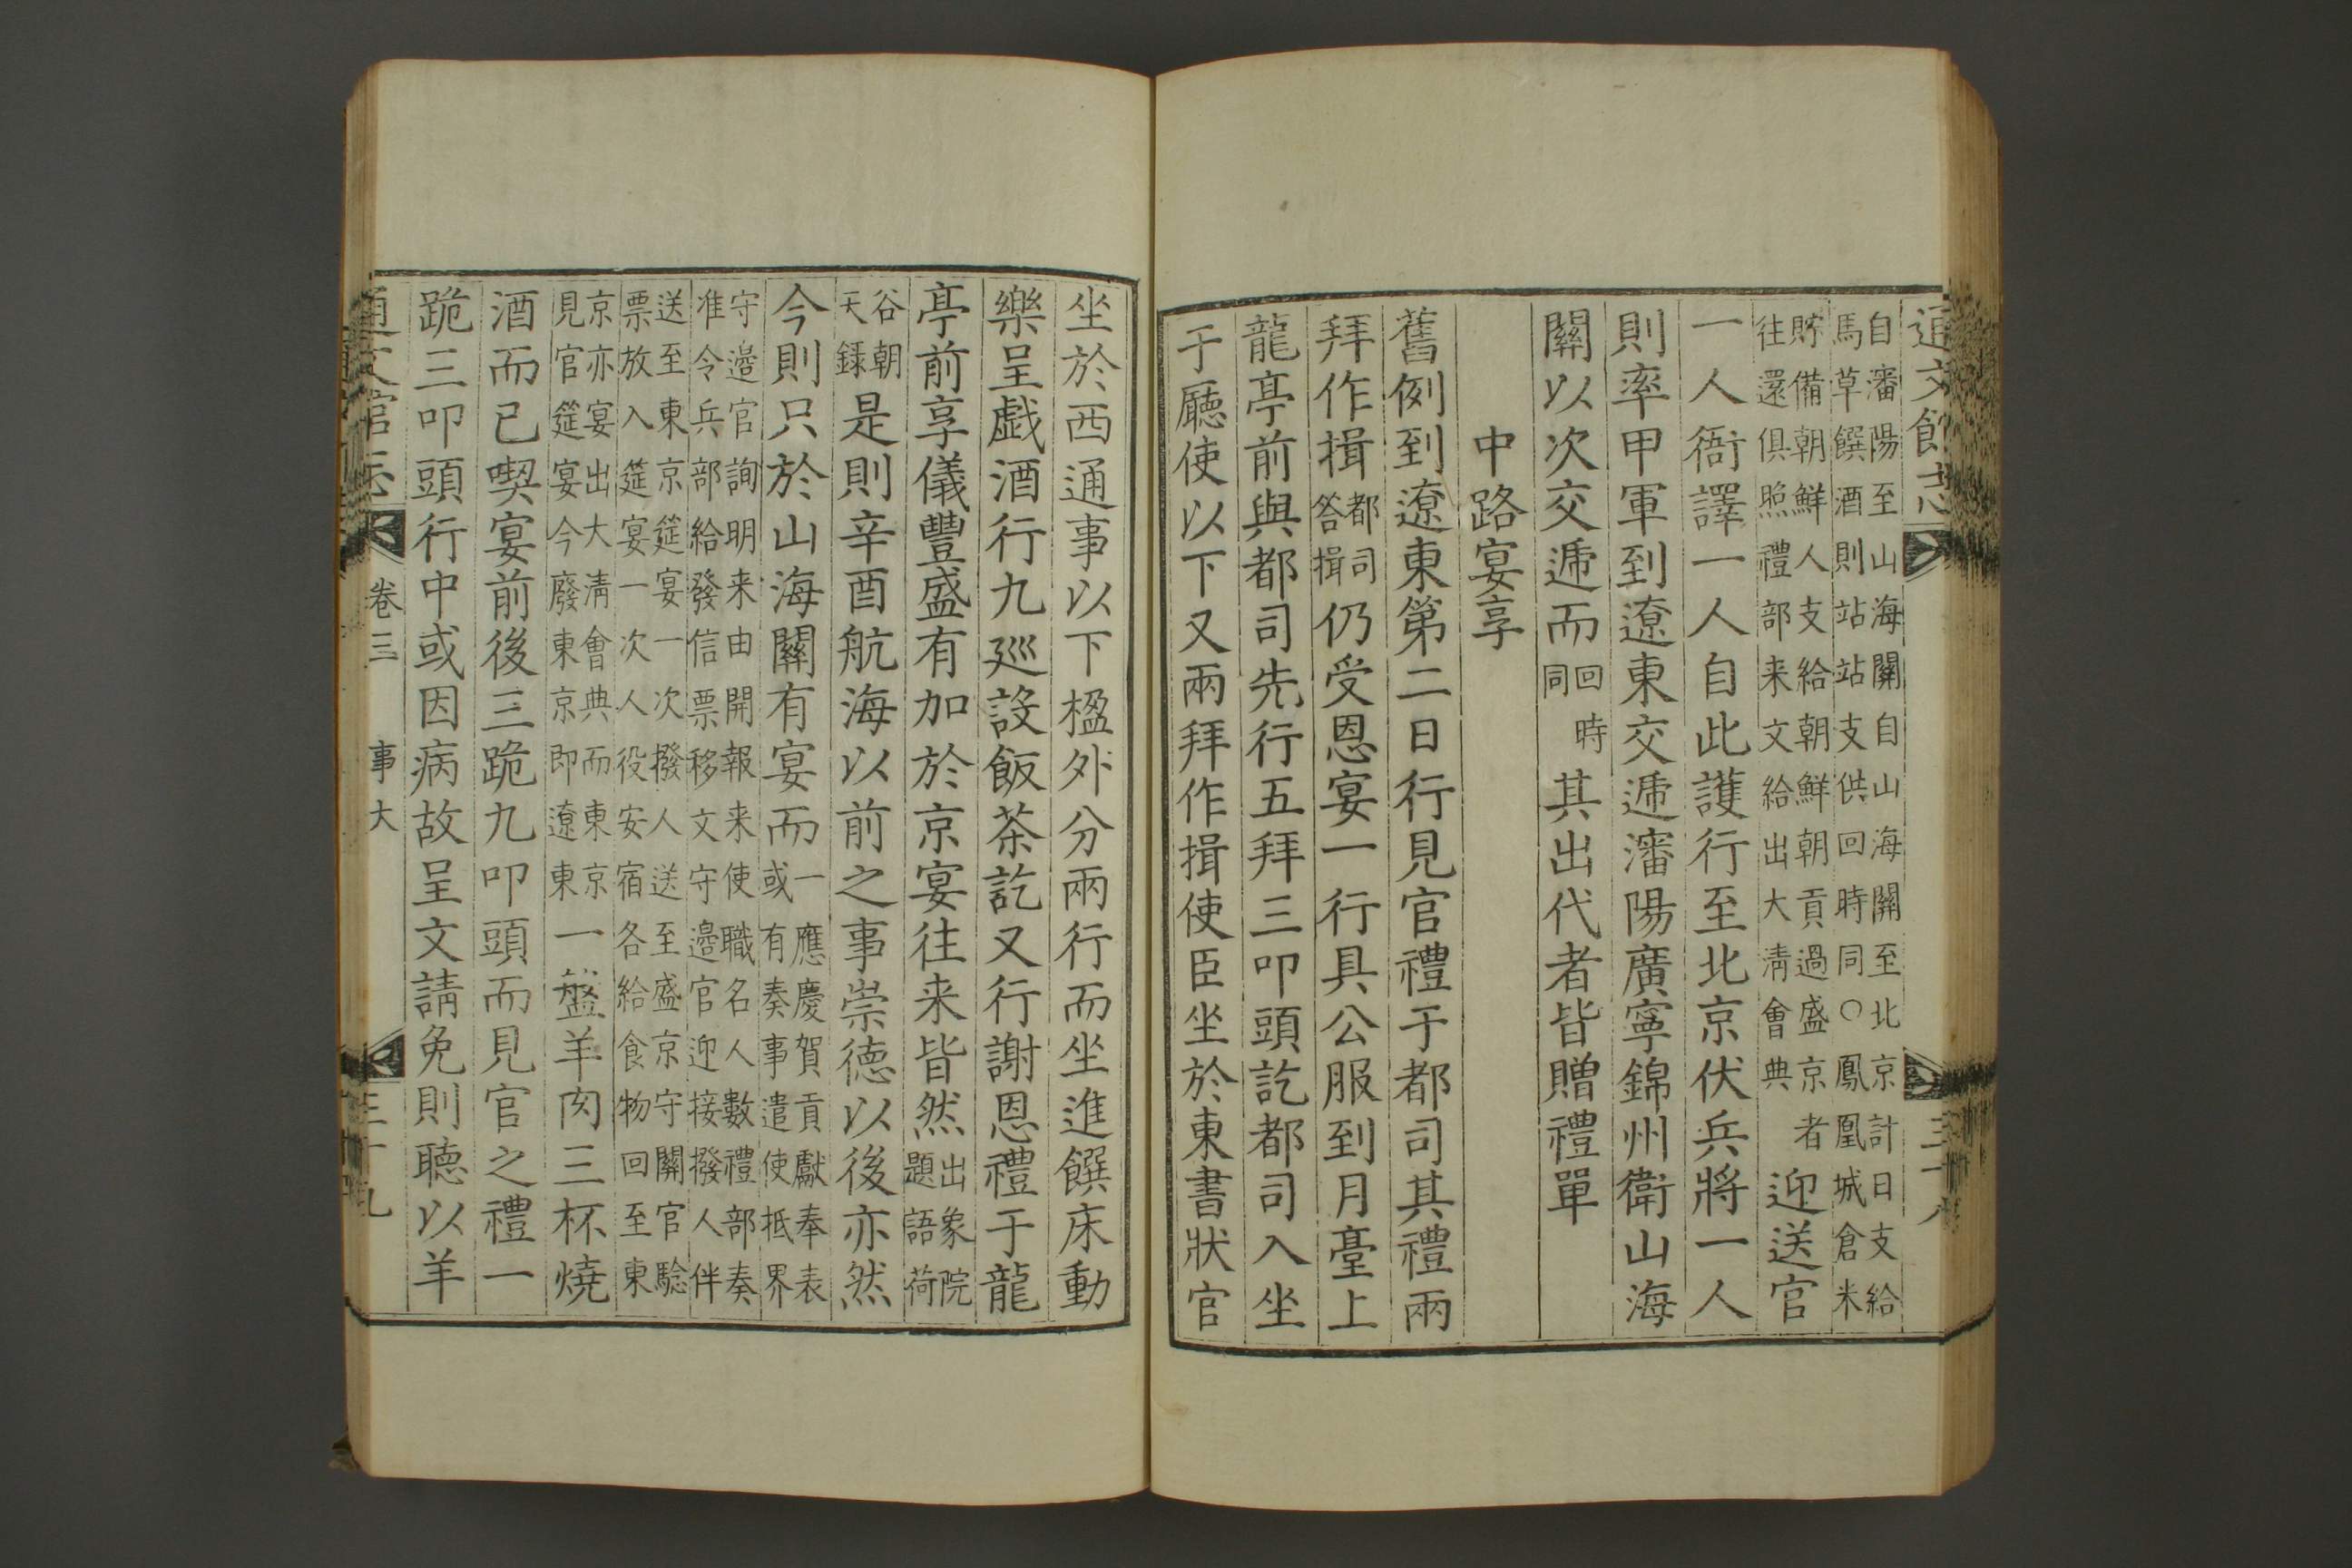 通文館志
自瀋陽至山海關自山海關至北京計日支給
馬草饌酒則站站支供回時同○鳳凰城倉米
貯備朝鮮人支給朝鮮朝貢過盛京者
往還俱照禮部来文給出大淸會典
迎送官
一人衙譯一人自此護行至北京伏兵將一人
則率甲軍到遼東交遞瀋陽廣寧錦州衛山海
關以次交遞而回時同其出代者皆贈禮單
中路宴享
舊例到遼東第二日行見官禮于都司其禮兩
拜作揖都司答揖仍受恩宴一行具公服到月臺上
龍亭前與都司先行五拜三叩頭訖都司入坐
于廳使以下又兩拜作揖使臣坐於東書狀官
坐於西通事以下楹外分兩行而坐進饌床動
樂呈戱酒行九廵設飯茶訖又行謝恩禮于龍
亭前享儀豐盛有加於京宴往来皆然出象院題語荷
谷朝天錄是則辛酉航海以前之事崇德以後亦然
今則只於山海關有宴而一應慶賀貢獻奉表
或有奏事遣使抵界
守邉官詢明来由開報来使職名人數禮部奏
准令兵部給發信票移文守邉官迎接撥人伴
送至東京筵宴一次撥人送至盛京守關官驗
票放入筵宴一次人役安宿各給食物回至東
京亦宴出大淸會典而東京
見官筵宴今廢東京即遼東
一盤羊肉三杯燒
酒而已喫宴前後三跪九叩頭而見官之禮一
跪三叩頭行中或因病故呈文請免則聽以羊
通文館志
卷三
事大
三十九